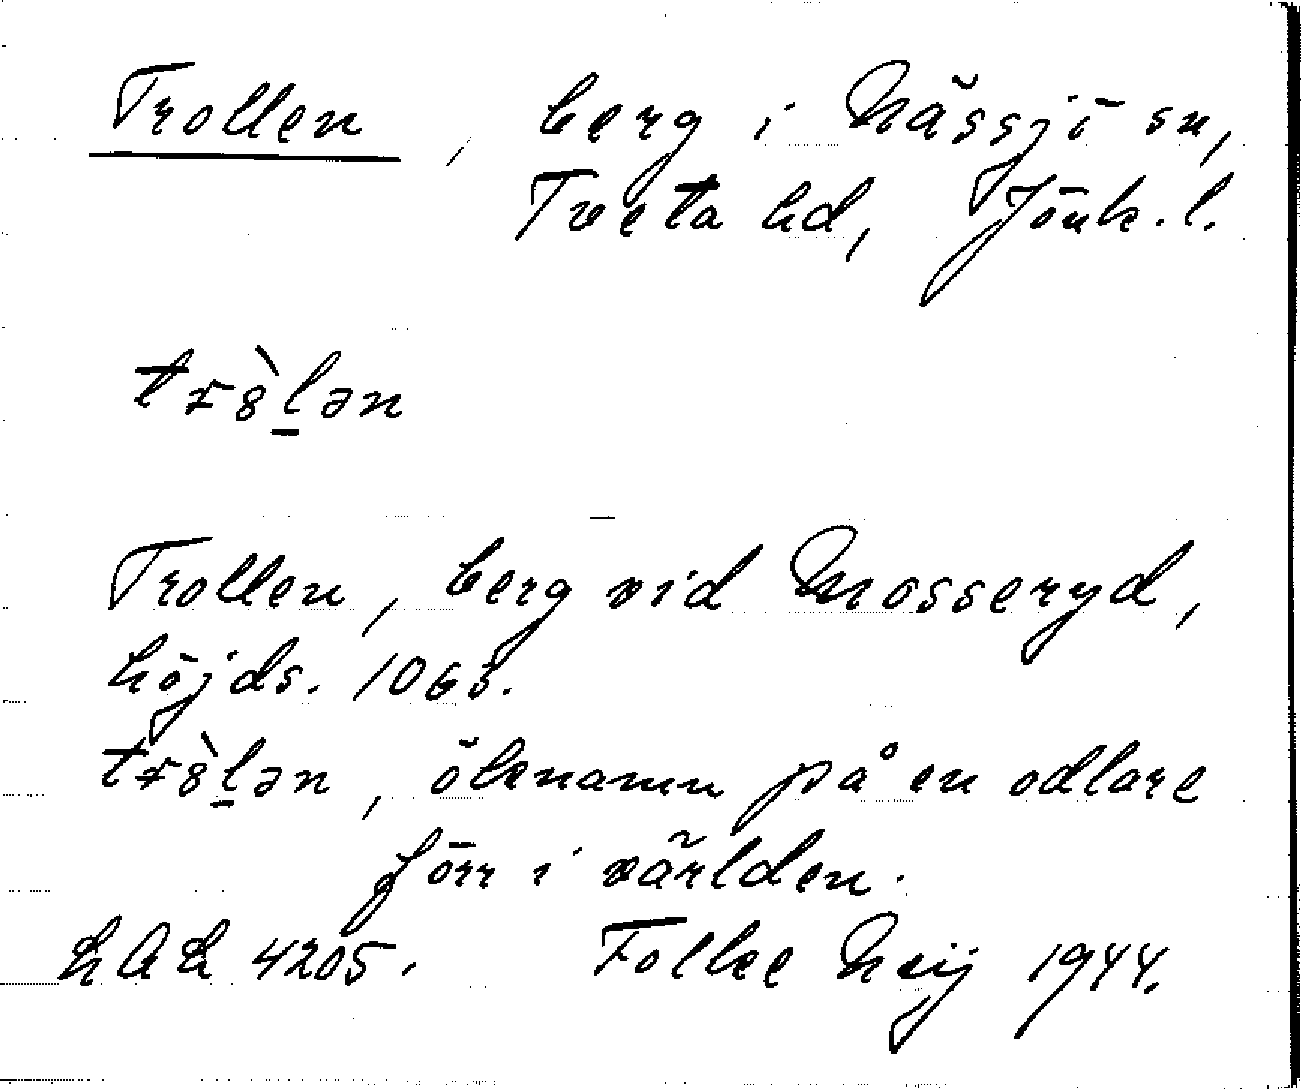 Trollen, berg i Nässjö sn,
Tveta hd, Jönk. l.
trò̀lən
Trollen, berg vid Mosseryd,
höjds. 1063.
trò̀lən, öknamn på en odlare
förr i världen.
4205. Folke Neij 1944.